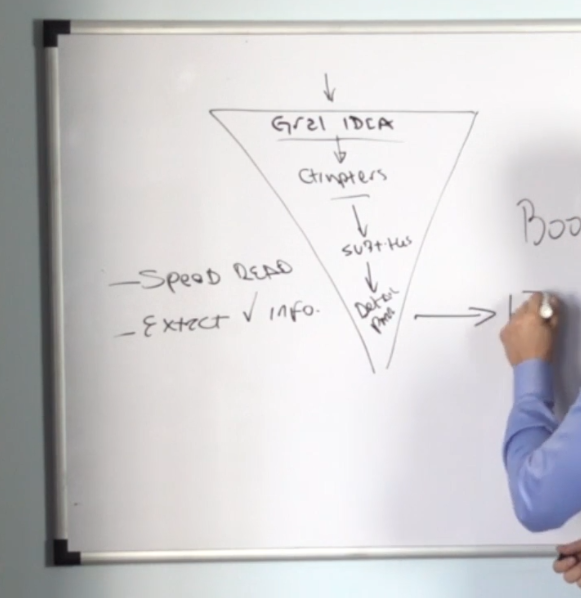 Gral IDEA
Chapters
subtitles
Detail
Boo
— Speed READ
— Extract ✓ info.